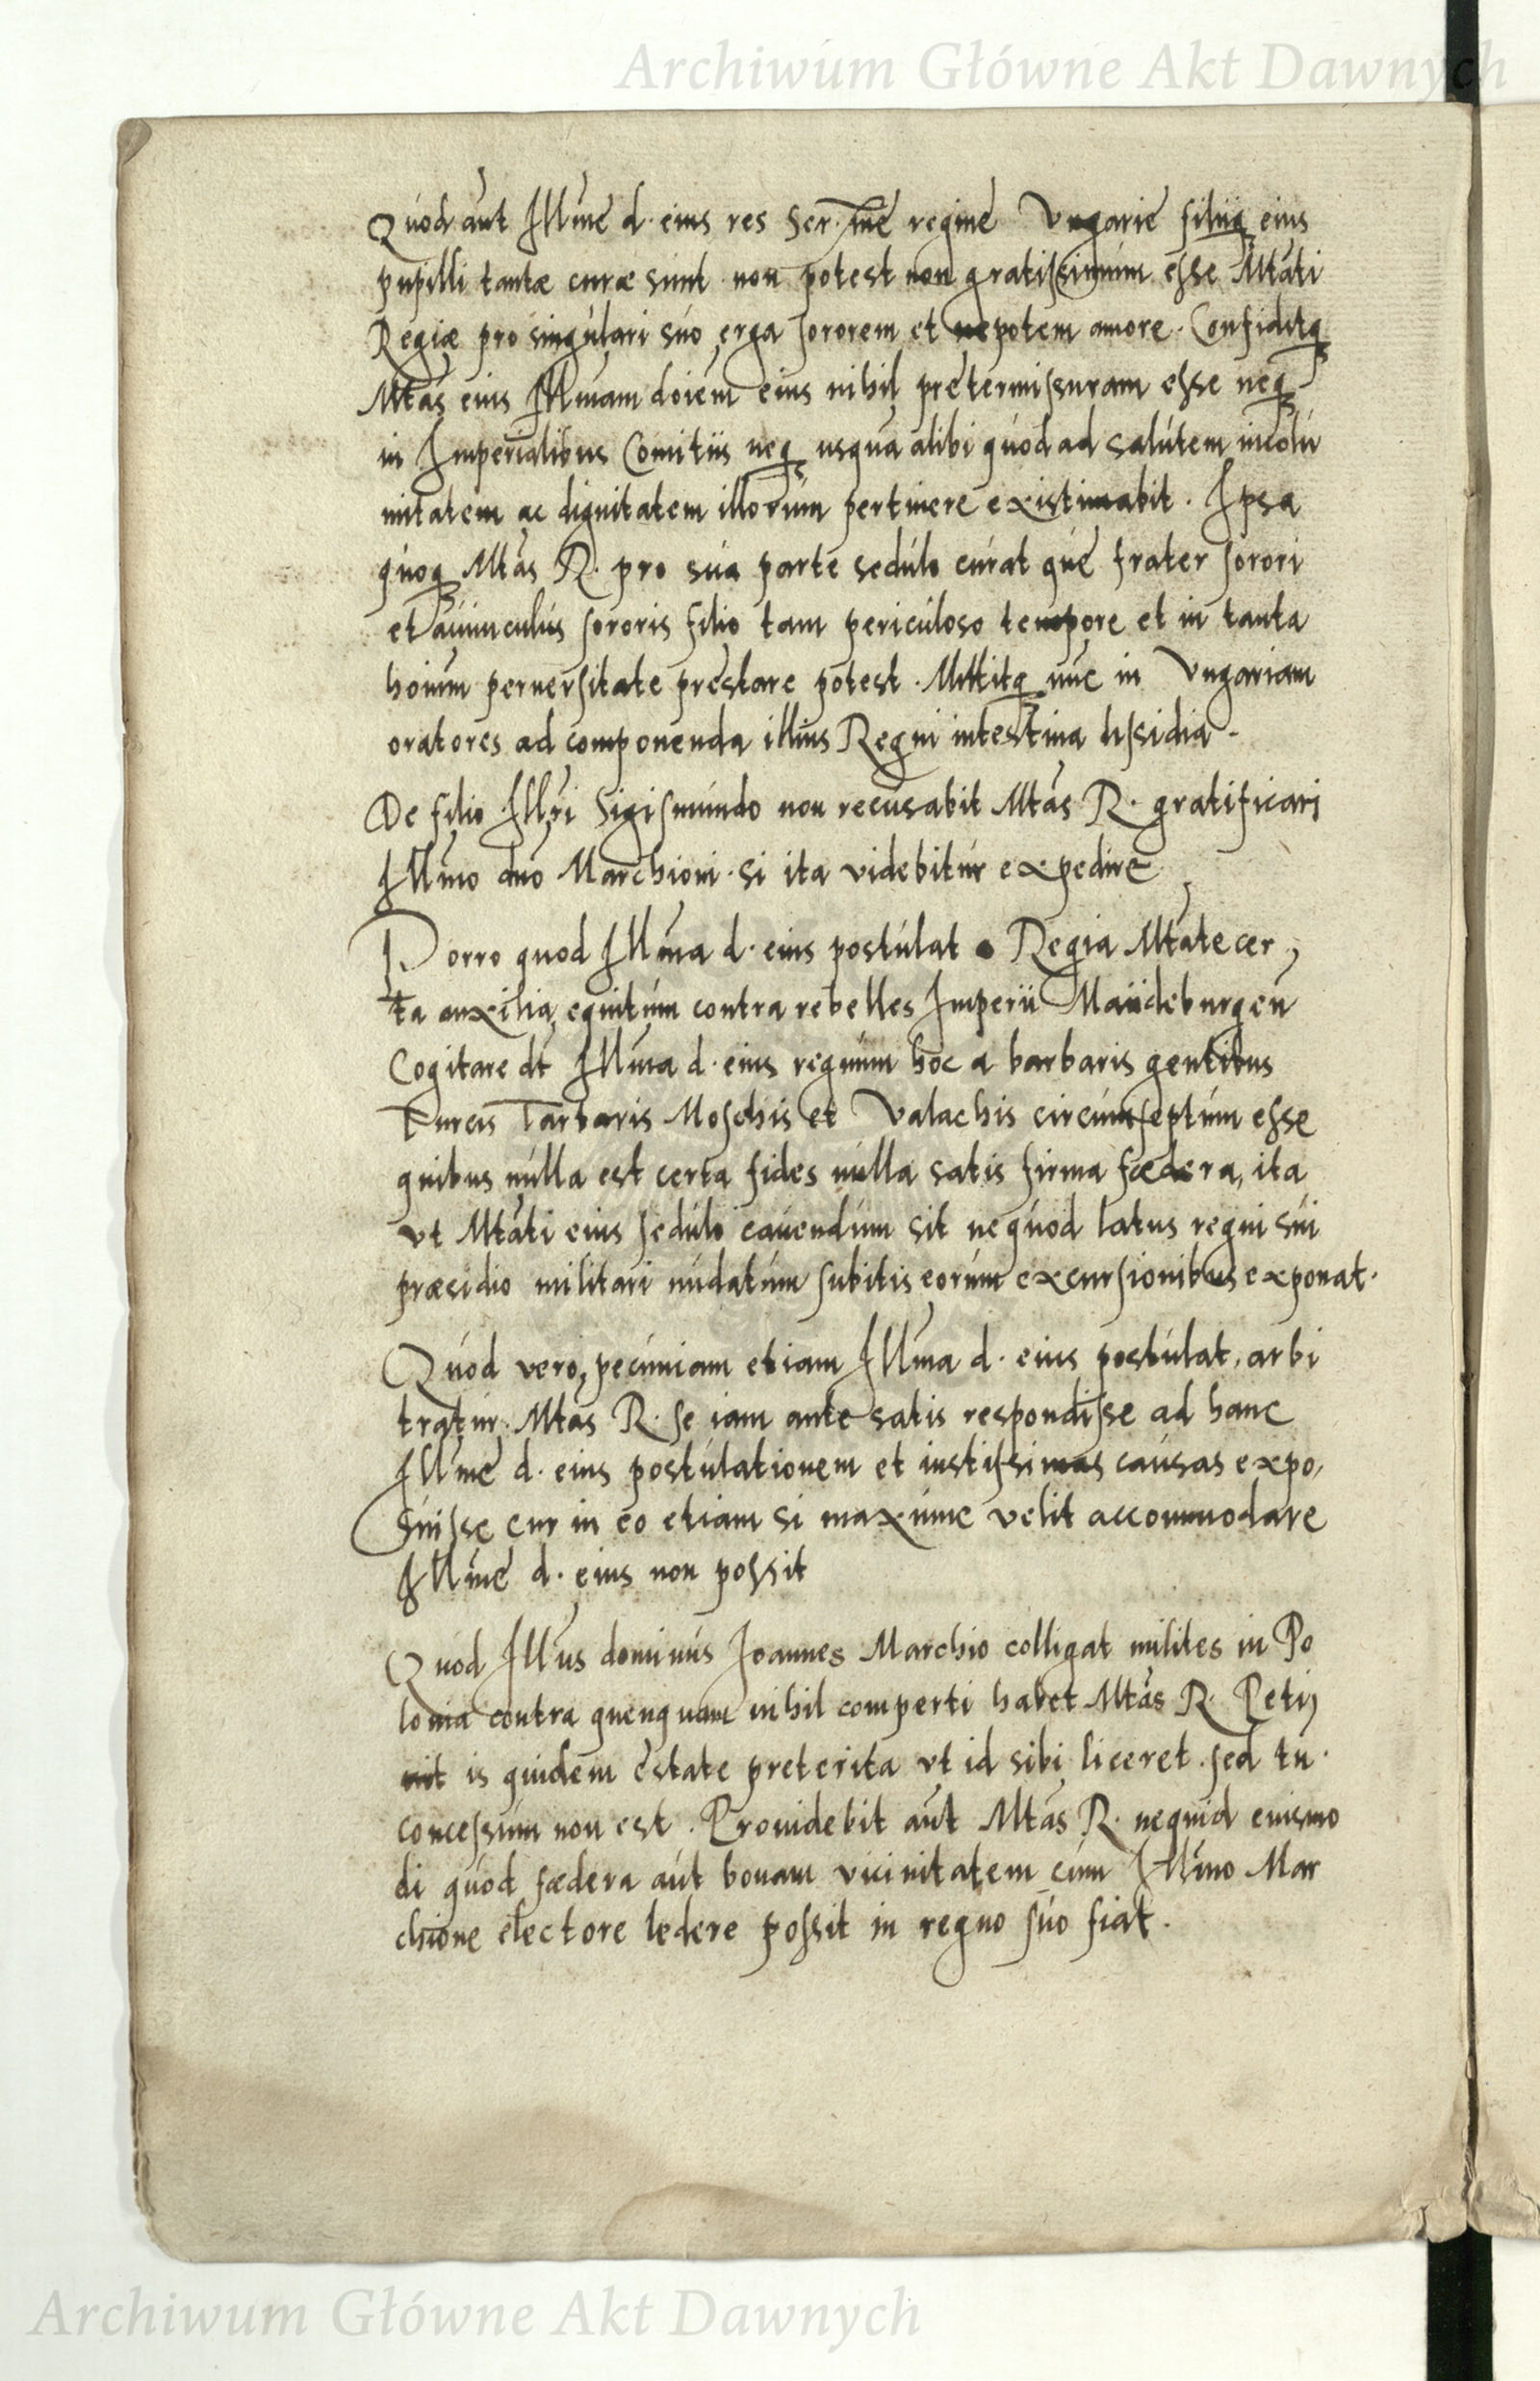 Archiwum Główne Akt Dawnych
Quod aūt Illme d. eius res Ser.me regine Vngarie filiiq eius
pupilli tantæ curæ sunt non potest non gratissimum esse Mtāti
Regiæ pro singulari suo erga sororem et nepotem amore. Confiditq
Mtās eius Illmam doiem eius nihil pretermissuram esse neq
in Imperialibus Comitiis neq usquā alibi quod ad salutem incolu
mitatem ac dignitatem illorum pertinere existimabit. Ipsa
quoq Mtās R. pro sua parte sedulo curat que frater sorori
et auunculus sororis filio tam periculoso tempore et in tanta
hoium peruersitate prestare potest. Mittitq nūc in Vngariam
oratores ad componenda illius Regni intestina dissidia.
De filio Illri Sigismundo non recusabit Mtās R. gratificari
Illmo dno Marchioni. si ita videbitur expedire
Porro quod Illma d. eius postulat a Regia Mtāte cer,
ta auxilia equitum contra rebelles Imperii Maideburgen
Cogitare dt Illma d. eius regnum hoc a barbaris gentibus
Turcis Tartaris Moschis et Valachis circumseptum esse
quibus nulla est certa fides nulla satis firma fœdera, ita
vt Mtāti eius sedulo cauendum sit ne quod latus regni sui
præsidio militari nudatum subitis eorum excursionibus exponat.
Quod vero pecuniam etiam Illma d. eius postulat, arbi
tratur Mtās R. se iam ante satis respondisse ad hanc
Illme d. eius postulationem et iustissimas causas expo,
suisse cur in eo etiam si maxime velit accommodare
Illme d. eius non possit
Quod Illus dominus Joannes Marchio colligat milites in Po
lonia contra quenquam nihil comperti habet Mtās R. Peti,
uit is quidem estate preterita vt id sibi liceret. sed tū.
concessum non est. Prouidebit aūt Mtās R. nequid eiusmo
di quod fœdera aut bonam vicinitatem cum Illmo Mar
chione electore ledere possit in regno suo fiat.
Archiwum Główne Akt Dawnych